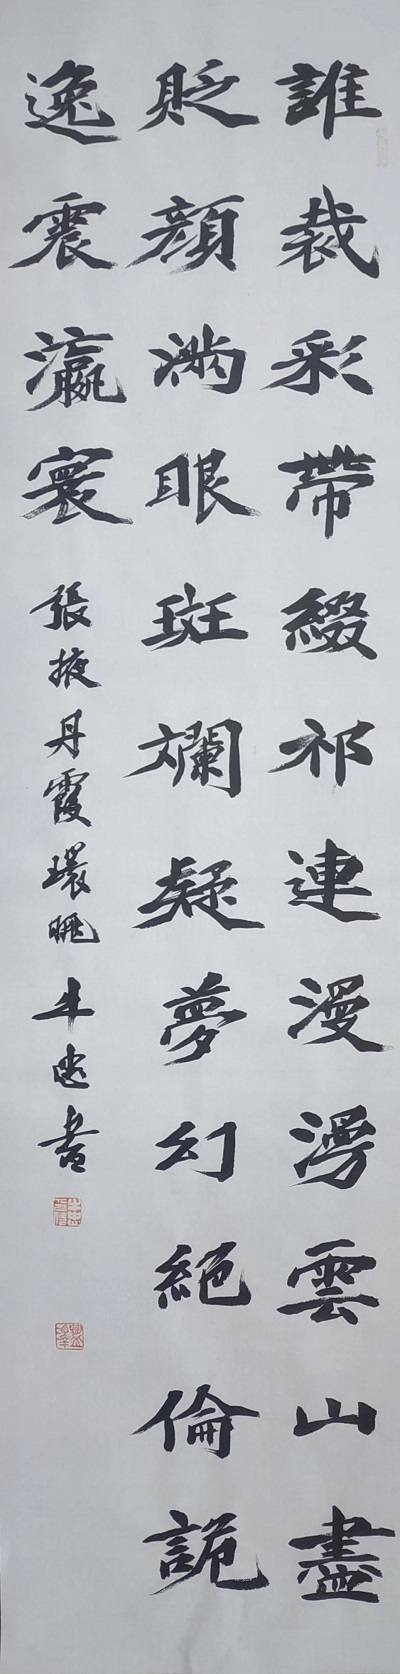 誰裁彩帶綴祁連漫湧雲山盡
貶顏滿眼斑斕疑夢幻絕倫詭
逸震瀛寰
張掖丹霞環眺 牛 書